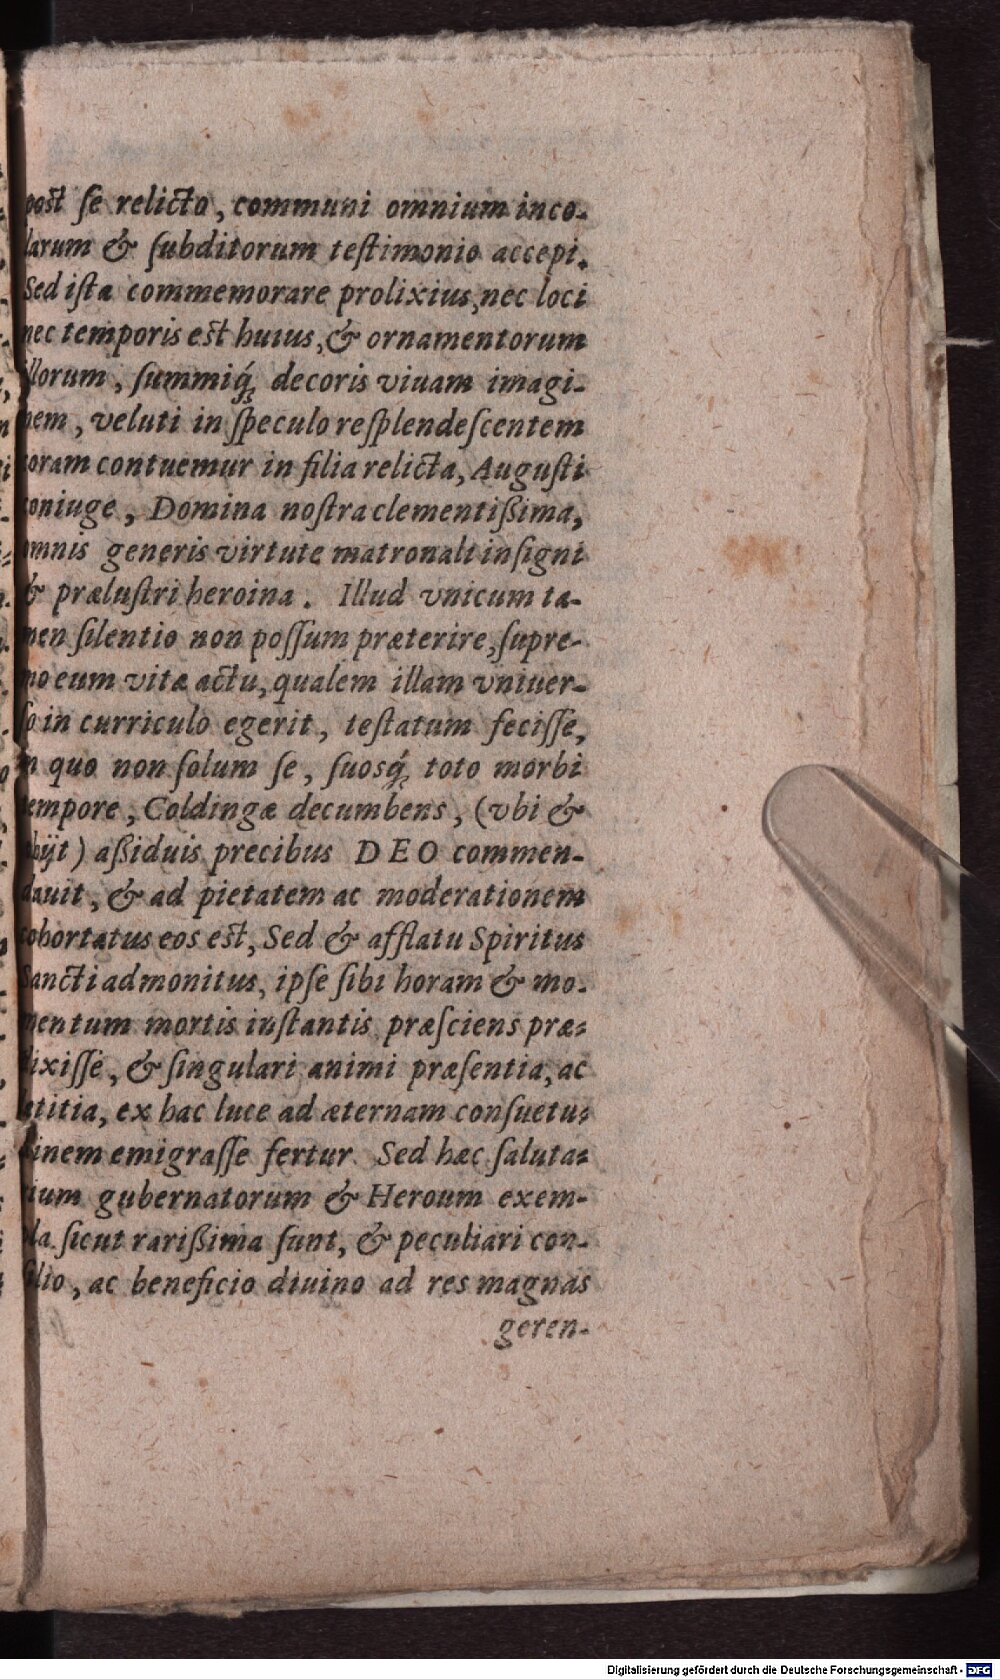 post se relicto, communi omnium inco-
larum & subditorum testimonio accepi.
Sed ista commemorare prolixius, nec loci
nec temporis est huius, & ornamentorum
illorum, summiq́; decoris viuam imagi-
nem, veluti in speculo resplendescentem
coram contuemur in filia relicta, Augusti
coniuge, Domina nostra clementißima,
omnis generis virtute matronali insigni
& prælustri heroina. Illud vnicum ta-
men silentio non possum præterire, supre-
mo eum vitæ actu, qualem illam vniuer-
so in curriculo egerit, testatum fecisse,
in quo non solum se, suosq́; toto morbi
tempore, Coldingæ decumbens, (vbi &
obijt) aßiduis precibus DEO commen-
dauit, & ad pietatem ac moderationem
cohortatus eos est, Sed & afflatu Spiritus
Sancti admonitus, ipse sibi horam & mo-
mentum mortis instantis præsciens præ-
dixisse, & singulari animi præsentia, ac
lætitia, ex hac luce ad æternam consuetu-
dinem emigrasse fertur. Sed hæc saluta-
rium gubernatorum & Heroum exem-
pla sicut rarißima sunt, & peculiari con-
silio, ac beneficio diuino ad res magnas
geren-
Digitalisierung gefördert durch die Deutsche Forschungsgemeinschaft - DFG